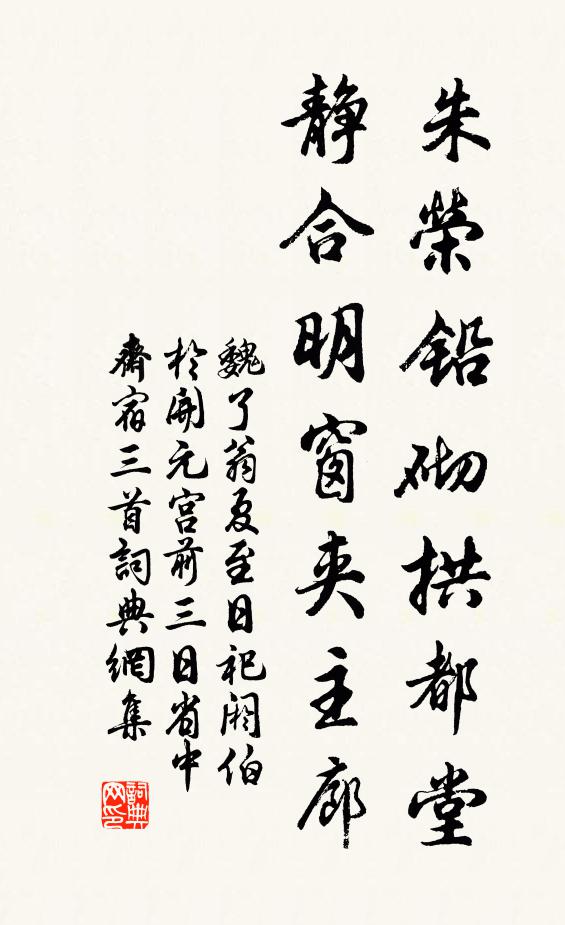 朱榮鉛砌拱都堂
静合明窗夾主廊
魏了翁夏至日祀阏伯
於開元宫前三日省中
齋宿三首詞典網集
詞典网印